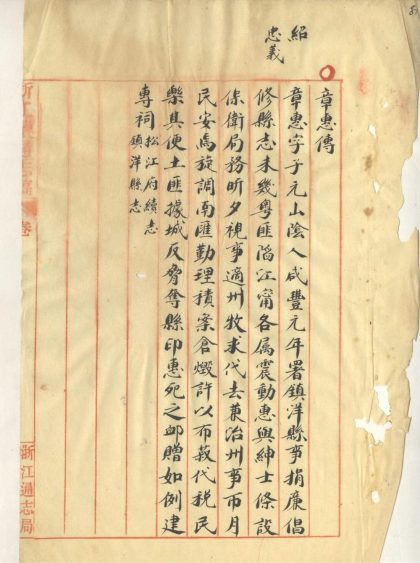 紹
忠義
章惠傳
章惠字子元山陰人咸豐元年署鎮洋縣事捐廉倡
修縣志未幾粵匪陷江甯各属震動惠與紳士條設
保衛局務昕夕視事適州牧求代去兼治州事帀月
民安焉旋調南匯勤理積案倉燬許以布菽代税民
樂其便土匪據城反脅奪縣印惠死之卹贈如例建
專祠 松江府續志
鎮洋縣志
浙江通志
卷
浙江通志局